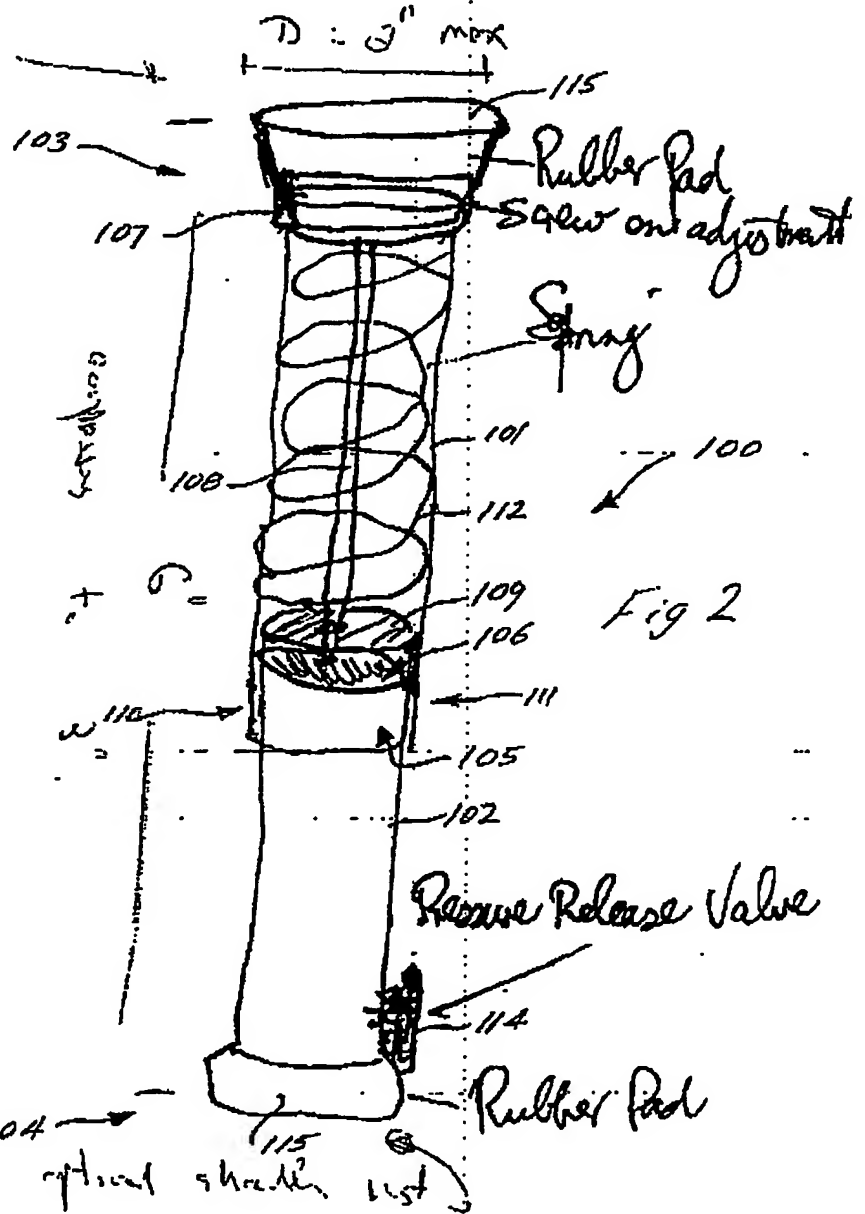 D : 2" max
115
103
Rubber Pad
107
Screw on adjustment
Spring
101
100
108
112
109
Fig 2
106
110
111
105
102
Pressure Release Valve
114
Rubber Pad
04
115